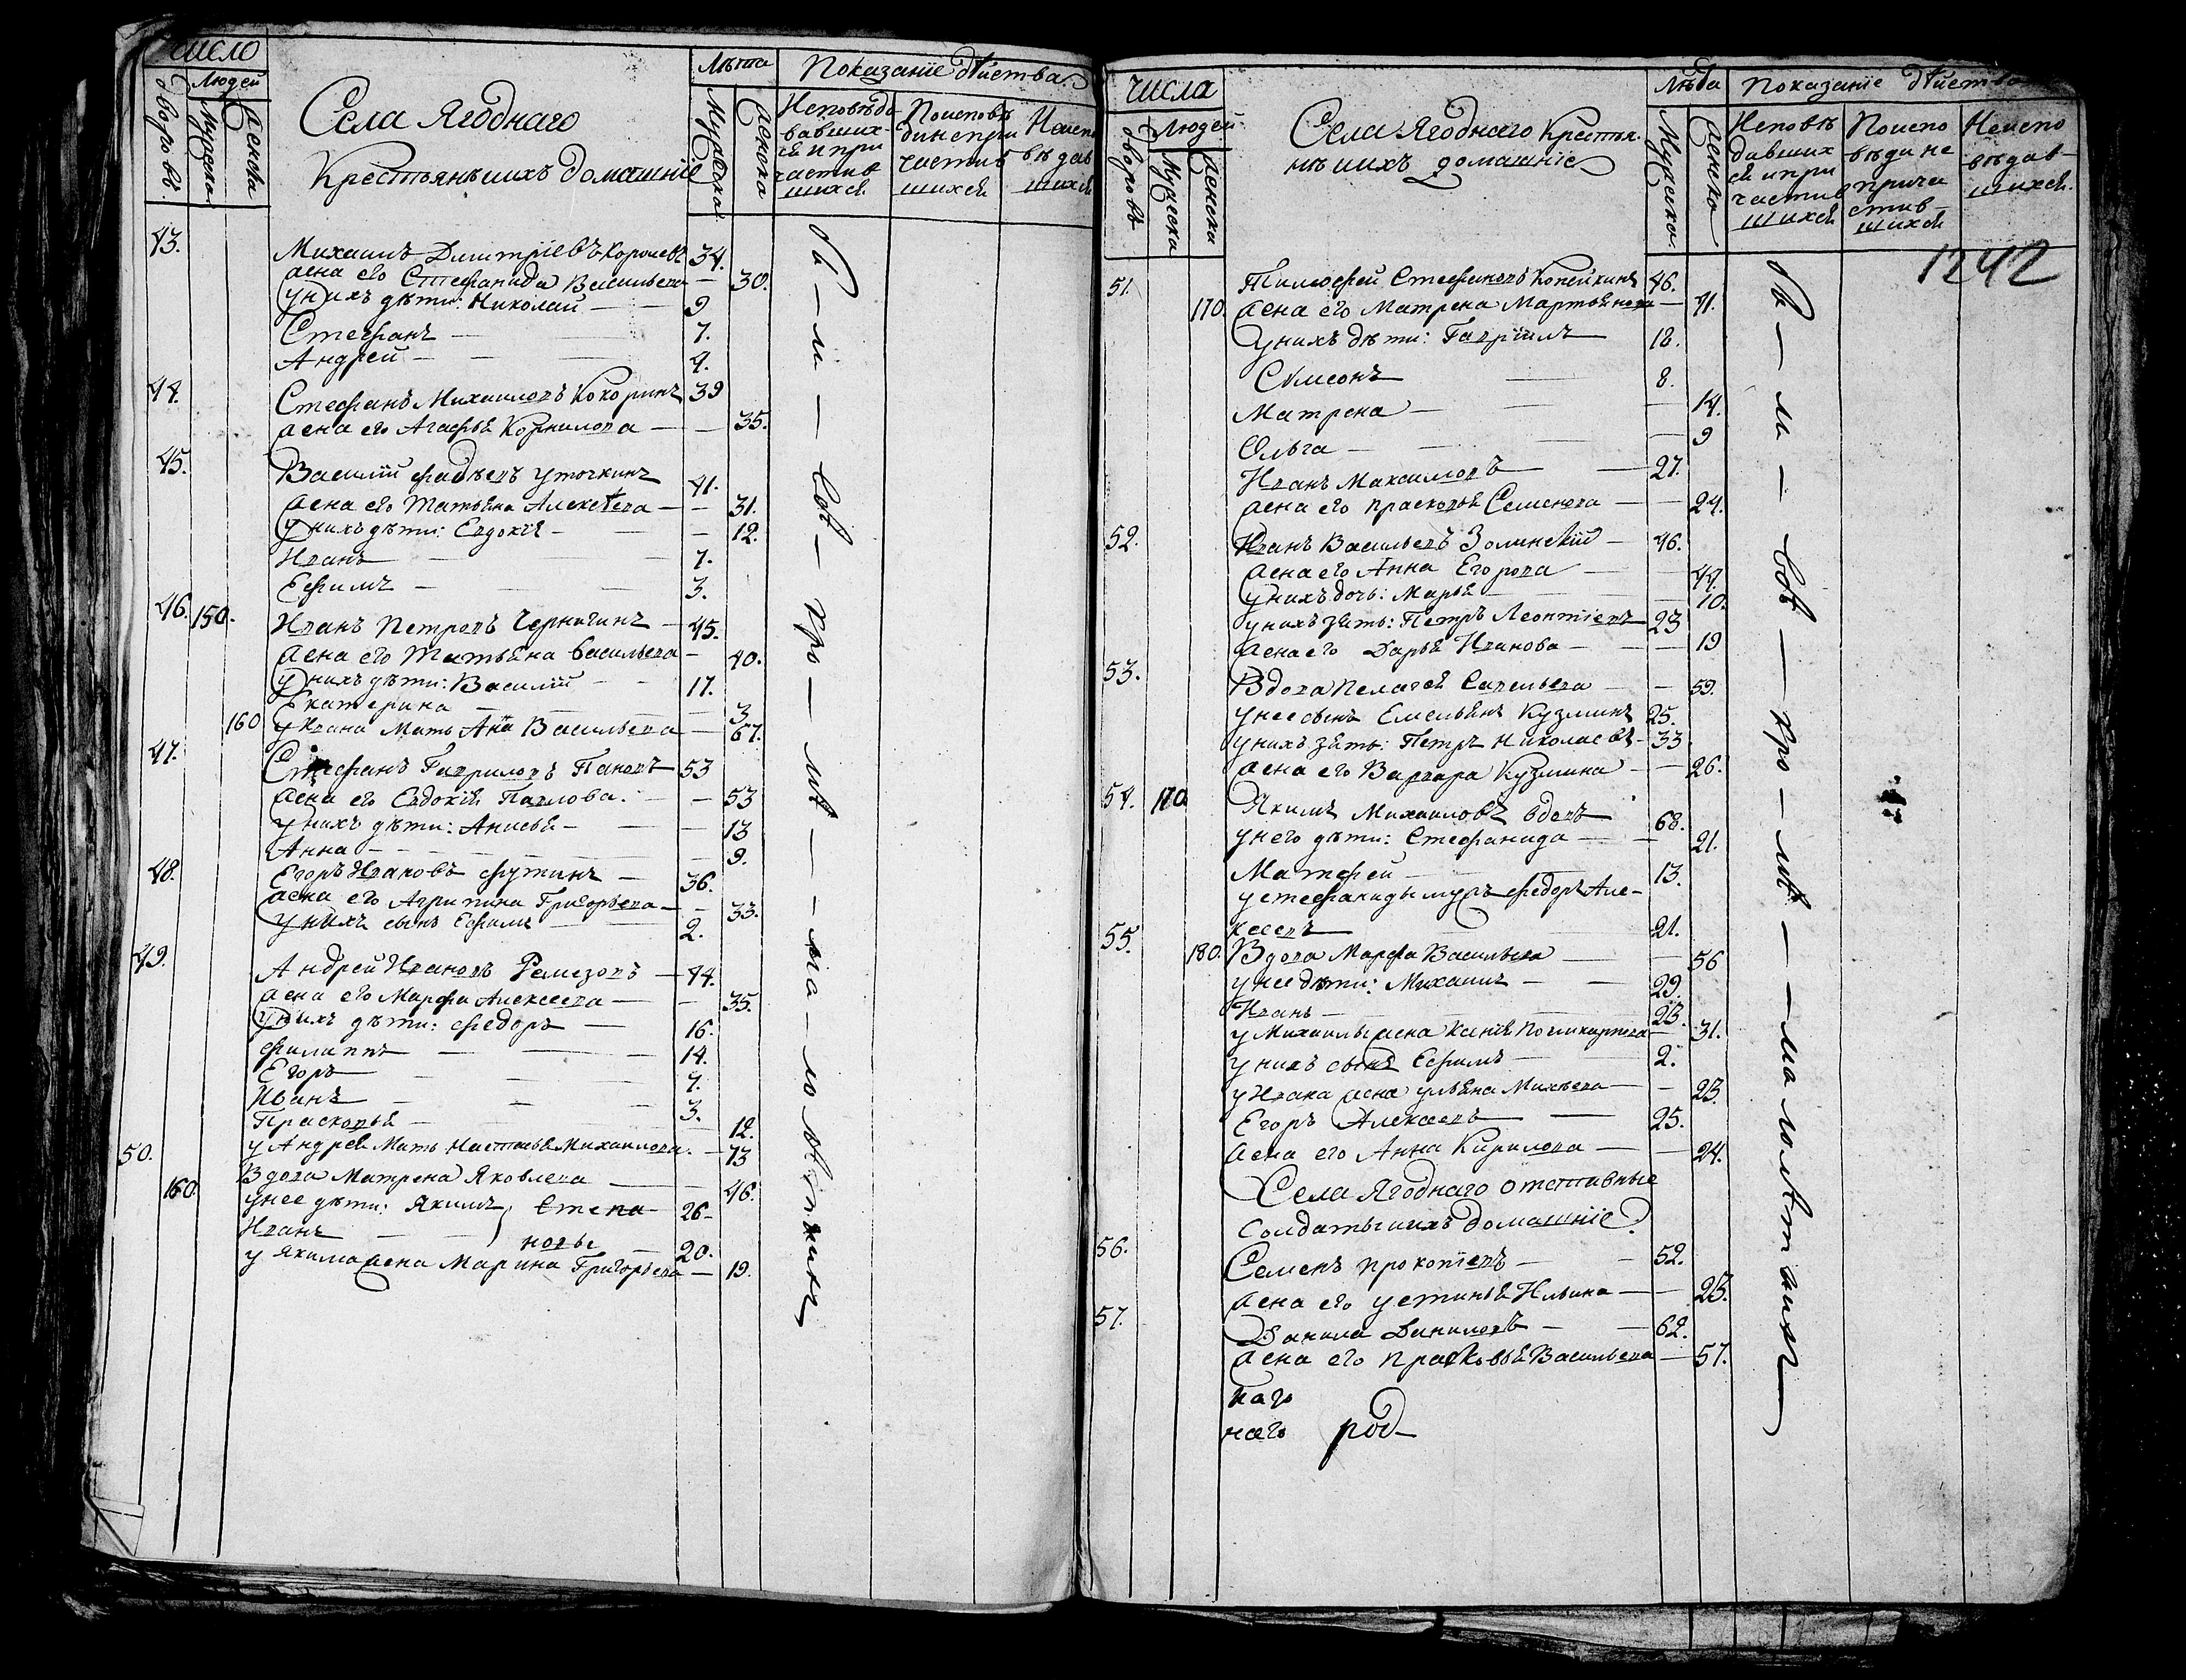 число
Людей
дворовъ
Мужеска
женска
Села Ягоднаго
Крестьянѣ ихъ домашніе
Лѣта
Мужеска
женска
Показаніе дѣйства
Исповѣдо
вавших
ся и при
частив
шихся
Поисповѣ
ди непри
частив
шихся
Неиспо
вѣдав
шихся
43. Михаилъ Димитріевъ Королевъ 34.
жена его Стефанида Васильева — 30.
у нихъ дѣти: Николай — 9
Стефанъ — 7.
Андрей — 4.
44. Стефанъ Михаиловъ Кокоринъ 39
жена его Агафья Корнилова — 35.
45. Василій Фадѣевъ Уточкинъ 41.
жена его Татьяна Алексѣева — 31.
у нихъ дѣти: Евдокія — 12.
Иванъ — 7.
Ефимъ — 3.
46. 150. Иванъ Петровъ Чернигинъ — 45.
жена его Татьяна Васильева — 40.
у нихъ дѣти: Василій — 17.
Екатерина — 3
160 у Ивана Мать Анна Васильева — 67.
47. Стефанъ Гавриловъ Пановъ 53
жена его Евдокія Павлова. — 53
у нихъ дѣти: Анисья — 13
Анна — 9.
48. Егоръ Ивановъ Футинъ — 36.
жена его Агрипина Григорьева — 33.
у нихъ сынъ Ефимъ — 2.
49. Андрей Ивановъ Ремезовъ — 44.
жена его Марфа Алексеева — 35.
у нихъ дѣти: Федоръ — 16.
Филиппъ — 14.
Егоръ — 7.
Иванъ — 3.
Прасковья — 12.
у Андрея Мать Настасья Михаилова. — 73
50. Вдова Матрена Яковлева — 46.
160. у нее дѣти: Якимъ, Степа- 26-
Иванъ — новы — 20.
у Якима жена Марина Григорьева — 19.
вы — и — сѣ — кро — мѣ — ма — ло лѣтнихъ
числа
Людей
дворовъ
Мужеска
женска
Села Ягоднаго Крестья-
нѣ ихъ домашніе
Лѣта
Мужеска
женска
Показаніе дѣйства
Исповѣ
давших
ся и при
частив
шихся
Поиспо
вѣди не
прича
стив
шихся
Неиспо
вѣдав-
шихся.
1242
51. Тимофей Стефановъ Копейкинъ 46.
170. жена его Матрена Мартьянова — 41.
у нихъ дѣти: Гавріилъ — 18.
Сѵмеонъ — 8.
Матрена — 14.
Ольга — 9
Иванъ Максимовъ — 27.
жена его Прасковья Семенова — 24.
52. Иванъ Васильевъ Золинскій — 46.
жена его Анна Егорова — 44.
у нихъ дочь: Марья — 10.
у нихъ зять: Петръ Леонтіевъ 23
жена его Дарья Иванова — 19
53. Вдова Пелагея Савельева — 59.
у нее сынъ Емельянъ Кузминъ 25.
у нихъ зять: Петръ Николаевъ — 33.
жена его Варвара Кузмина — 26.
54. 170 Якимъ Михаиловъ вдовъ 68.
у него дѣти: Стефанида — 21.
Матфей — 13.
у Стефаниды мужъ Федоръ Але-
ксеевъ 21.
55. 180. Вдова Марфа Васильева — 56
у нее дѣти: Михаилъ — 29.
Иванъ — 23.
у Михаилы жена Ксенія Поликарпова — 31.
у нихъ сынъ Ефимъ — 2.
у Ивана жена Ульяна Михѣева — 23.
Егоръ Алексеевъ — 25.
жена его Анна Кирилова — 24.
Села Ягоднаго отставные
солдаты ихъ домашніе
56. Семенъ Прокопіевъ — 52.
жена его Устинья Ильина — 23.
57. Данила Даниловъ — 62.
жена его Прасковья Васильева — 57.
наго
наго род-
вы — и — сѣ — кро — мѣ — малолѣтнихъ